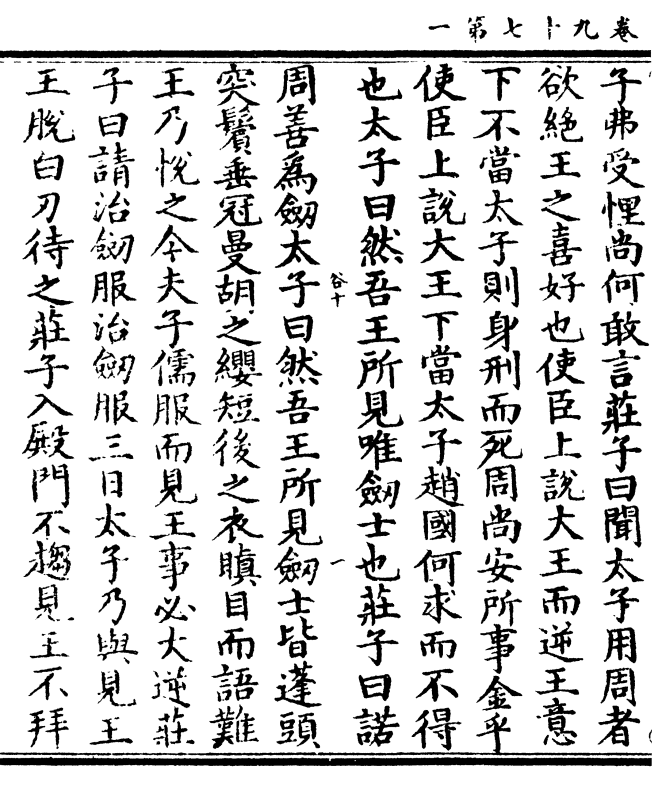 卷九十七第一
子弗受悝尚何敢言莊子曰聞太子用周者
欲絕王之喜好也使臣上說大王而逆王意
下不當太子則身刑而死周尚安所事金乎
使臣上說大王下當太子趙國何求而不得
也太子曰然吾王所見唯劒士也莊子曰諾
谷十 一
周善為劒太子曰然吾王所見劒士皆蓬頭
突鬢垂冠曼胡之纓短後之衣瞋目而語難
王乃悅之今夫子儒服而見王事必大逆莊
子曰請治劒服治劒服三日太子乃與見王
王脫白刃待之莊子入殿門不趨見王不拜